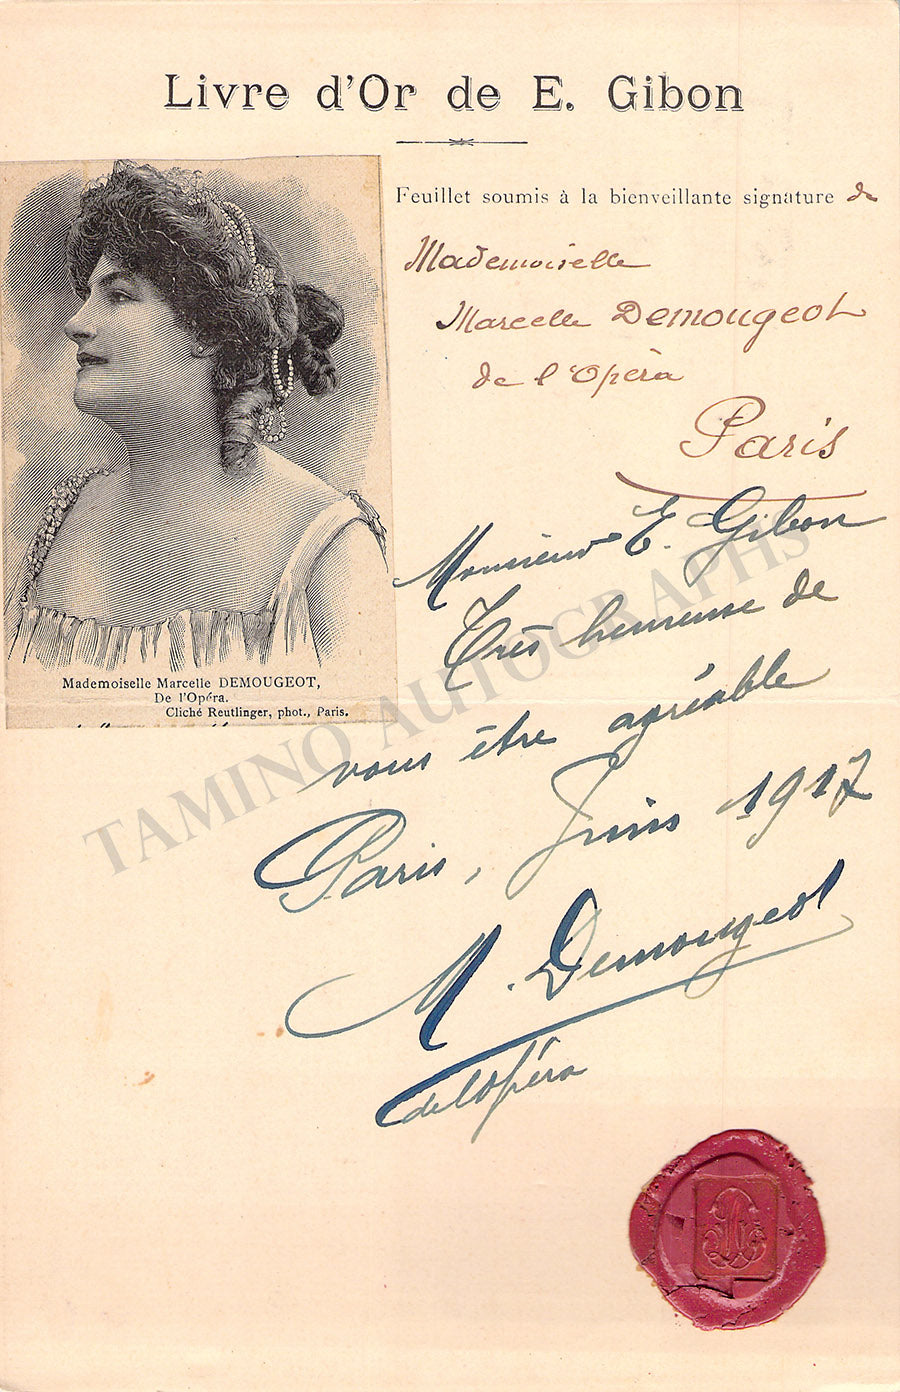 Livre d'Or de E. Gibon
Feuillet soumis à la bienveillante signature de
Mademoiselle
Marcelle Demougeot
de l'Opéra
Paris
Mademoiselle Marcelle DEMOUGEOT,
De l'Opéra.
Cliché Reutlinger, phot., Paris.
Monsieur E. Gibon
Très heureuse de
vous être agréable
Paris, Juin 1917
M. Demougeot
de l'Opéra
TAMINO AUTOGRAPHS